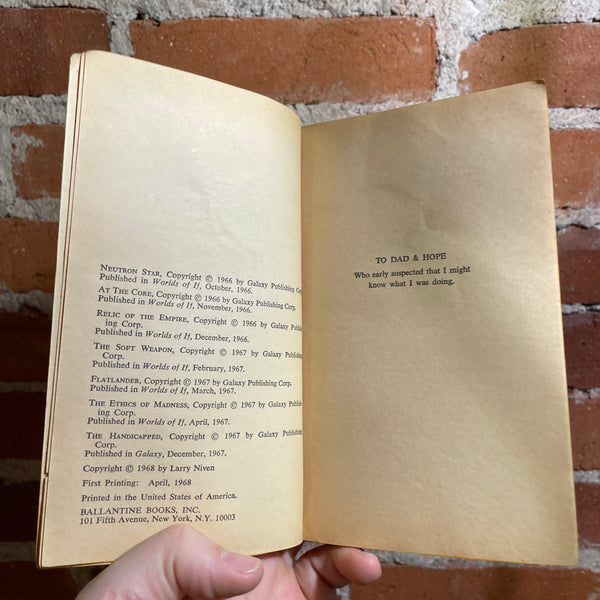 NEUTRON STAR, Copyright © 1966 by Galaxy Publishing Corp
Published in Worlds of If, October, 1966.
AT THE CORE, Copyright © 1966 by Galaxy Publishing Corp.
Published in Worlds of If, November, 1966.
RELIC OF THE EMPIRE, Copyright © 1966 by Galaxy Publish-
ing Corp.
Published in Worlds of If, December, 1966.
THE SOFT WEAPON, Copyright © 1967 by Galaxy Publishing
Corp.
Published in Worlds of If, February, 1967.
FLATLANDER, Copyright © 1967 by Galaxy Publishing Corp.
Published in Worlds of If, March, 1967.
THE ETHICS OF MADNESS, Copyright © 1967 by Galaxy Publish-
ing Corp.
Published in Worlds of If, April, 1967.
THE HANDICAPPED, Copyright © 1967 by Galaxy Publishing
Corp.
Published in Galaxy, December, 1967.
Copyright © 1968 by Larry Niven
First Printing: April, 1968
Printed in the United States of America.
BALLANTINE BOOKS, INC.
101 Fifth Avenue, New York, N.Y. 10003
TO DAD & HOPE
Who early suspected that I might
know what I was doing.